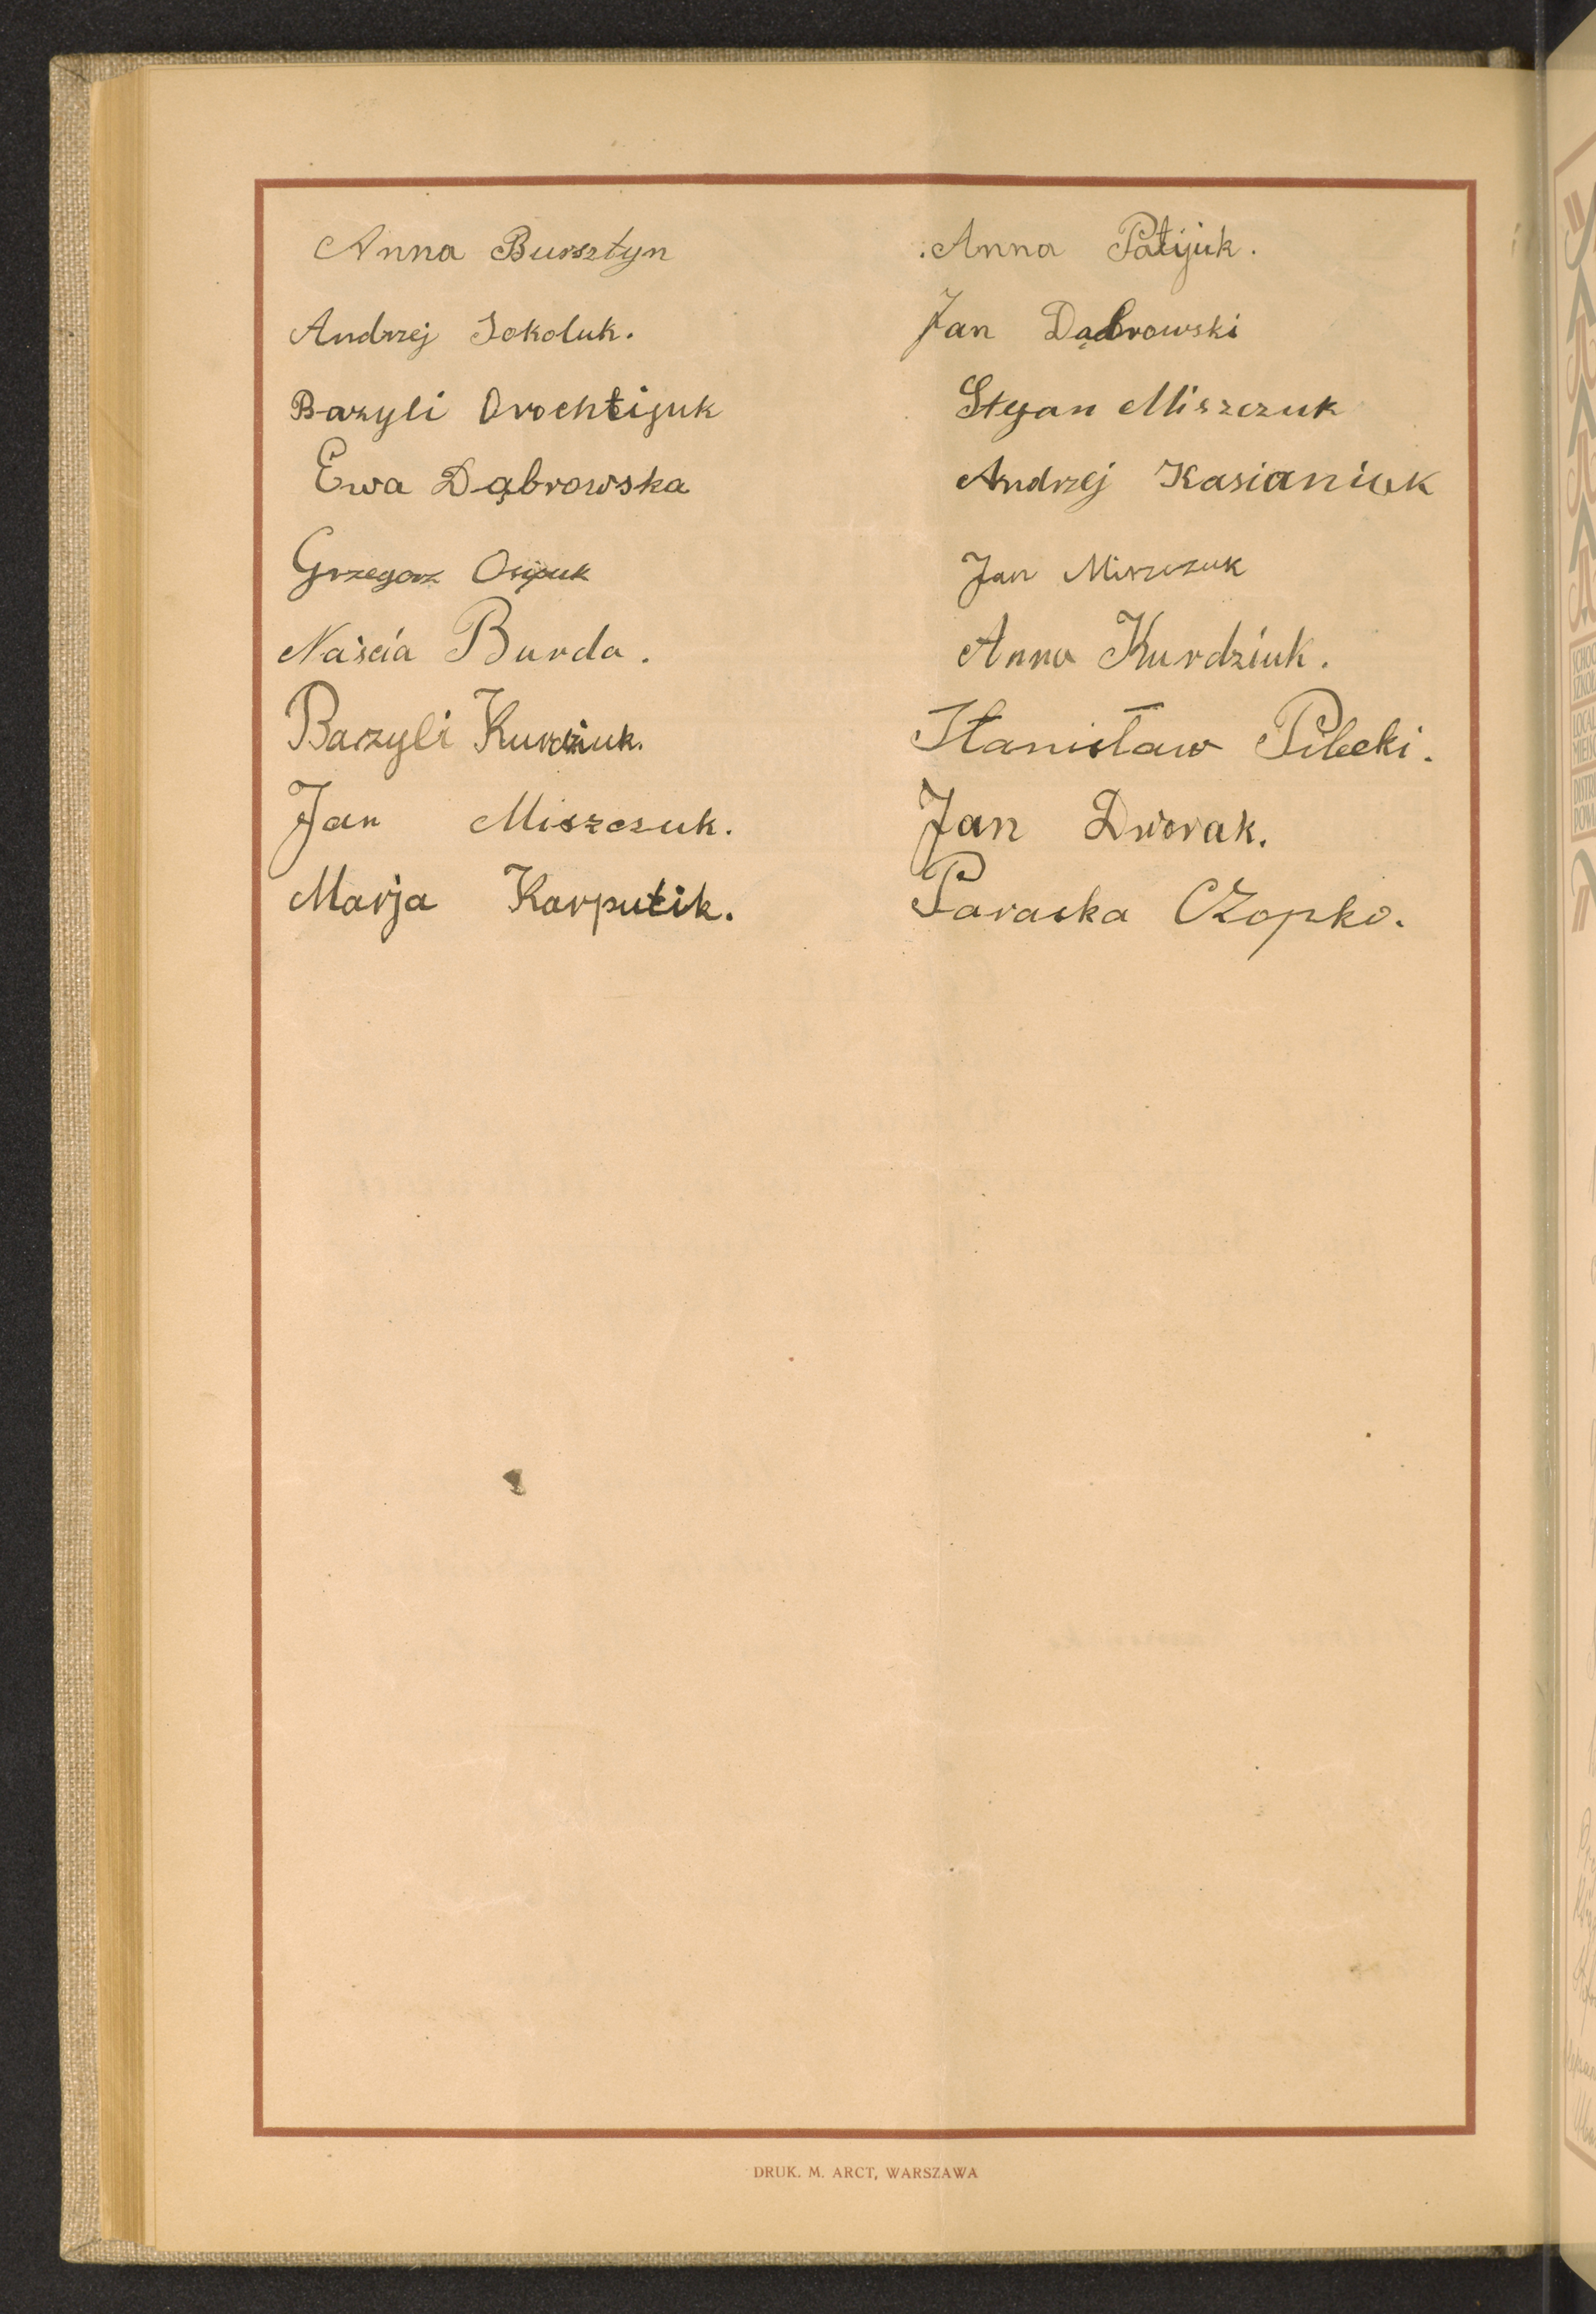 Anna Bursztyn
Andrzej Sokoluk.
Bazyli Orochtijuk
Ewa Dąbrowska
Grzegorz Osijuk
Naścia Burda.
Bazyli Kurdziuk.
Jan Miszczuk.
Marja Karputik.
Anna Patijuk.
Jan Dąbrowski
Stefan Miszczuk
Andrzej Kasianiuk
Jan Miszczuk
Anna Kurdziuk.
Stanisław Pilecki.
Jan Dworak.
Paraska Czopko.
DRUK. M. ARCT, WARSZAWA